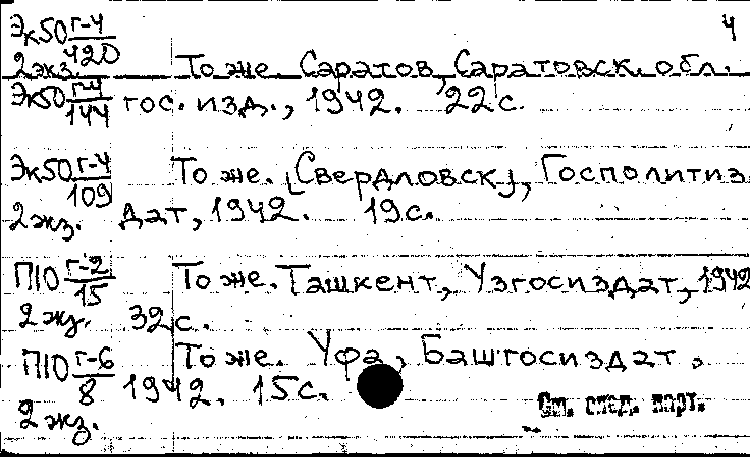 Эк50 г-4/420 4
2 экз. То же. Саратов, Саратовск. обл.
Эк50 г-4/144 гос. изд., 1942. 22 с.
Эк50 г-4/109 То же. [Свердловск], Госполитиз
2 экз. дат, 1942. 19 с.
П10 г-2/15 То же. Ташкент, Узгосиздат, 1942
2 экз. 32 с.
П10 г-6/8 То же. Уфа, Башгосиздат,
1942. 15 с.
2 экз. См. след. карт.